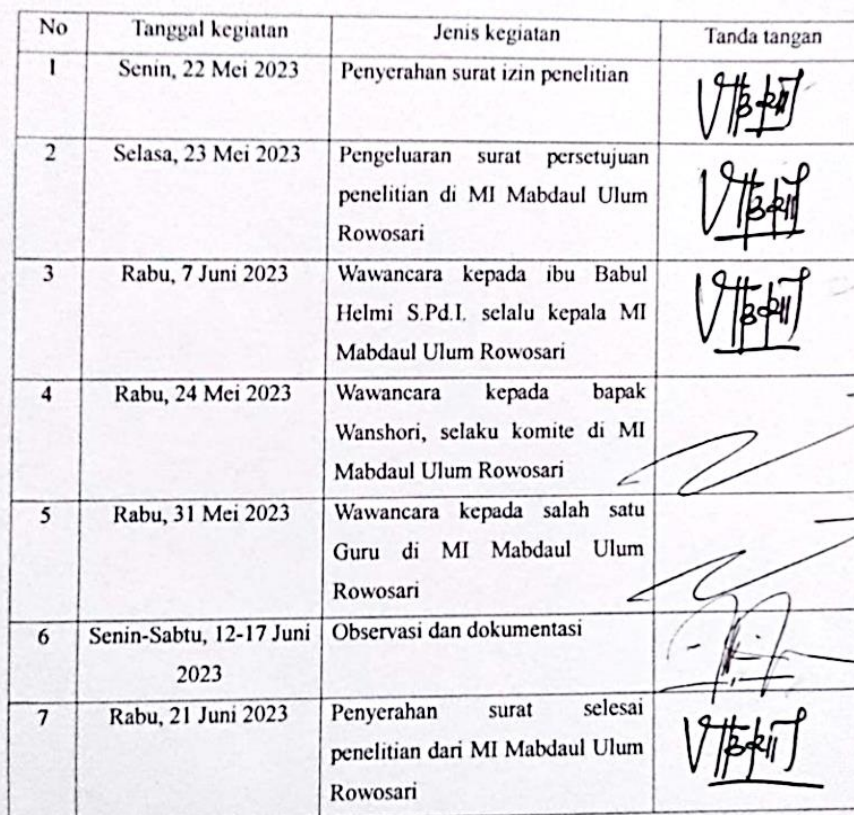 No Tanggal kegiatan Jenis kegiatan Tanda tangan
1 Senin, 22 Mei 2023 Penyerahan surat izin penelitian
2 Selasa, 23 Mei 2023 Pengeluaran surat persetujuan
penelitian di MI Mabdaul Ulum
Rowosari
3 Rabu, 7 Juni 2023 Wawancara kepada ibu Babul
Helmi S.Pd.I, selalu kepala MI
Mabdaul Ulum Rowosari
4 Rabu, 24 Mei 2023 Wawancara kepada bapak
Wanshori, selaku komite di MI
Mabdaul Ulum Rowosari
5 Rabu, 31 Mei 2023 Wawancara kepada salah satu
Guru di MI Mabdaul Ulum
Rowosari
6 Senin-Sabtu, 12-17 Juni Observasi dan dokumentasi
2023
7 Rabu, 21 Juni 2023 Penyerahan surat selesai
penelitian dari MI Mabdaul Ulum
Rowosari